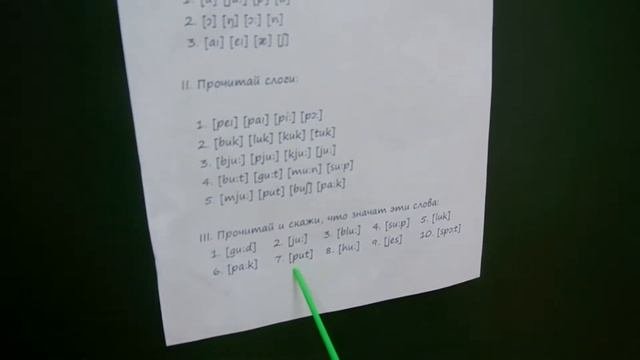 2. [ɔ] [ŋ] [ɔ:] [n]
3. [aɪ] [eɪ] [æ] [ʃ]
II. Прочитай слоги:
1. [peɪ] [paɪ] [pi:] [pɔ:]
2. [buk] [luk] [kuk] [tuk]
3. [bju:] [pju:] [kju:] [ju:]
4. [bu:t] [gu:t] [mu:n] [su:p]
5. [mju:] [put] [buʃ] [pa:k]
III. Прочитай и скажи, что значат эти слова:
1. [gu:d] 2. [ju:] 3. [blu:] 4. [su:p] 5. [luk]
6. [pa:k] 7. [put] 8. [hu:] 9. [jes] 10. [spɔ:t]